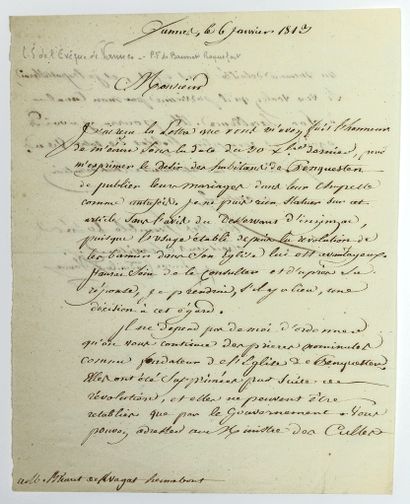 Vannes, le 6 janvier 1813
L.S. de l'Evêque de Vannes - P.F. de Bausset Roquefort
Monsieur
J'ai reçu la Lettre que vous m'avez fait l'honneur
de m'écrire sous la date du 20 Xbre dernier, pour
m'exprimer le desir des habitans de Penquesten
de publier leurs mariages dans leur chapelle
comme autrefois. Je ne puis rien statuer sur cet
article sans l'avis du Desservant d'inzinzac,
puisque l'usage établi depuis la révolution de
les bannir dans son Eglise lui est avantageux.
J'aurai soin de le consulter et d'après sa
réponse, je prendrai, s'il y a lieu, une
décision à cet égard.
Il ne dépend pas de moi d'ordonner
qu'on vous continue des prieres nominales
comme fondateur de l'Eglise de Penquesten,
Elles ont été supprimées par suite de la
révolution, et elles ne peuvent être
retablies que par le Gouvernement. Vous
pouvez adresser au Ministre des Cultes
hennebont